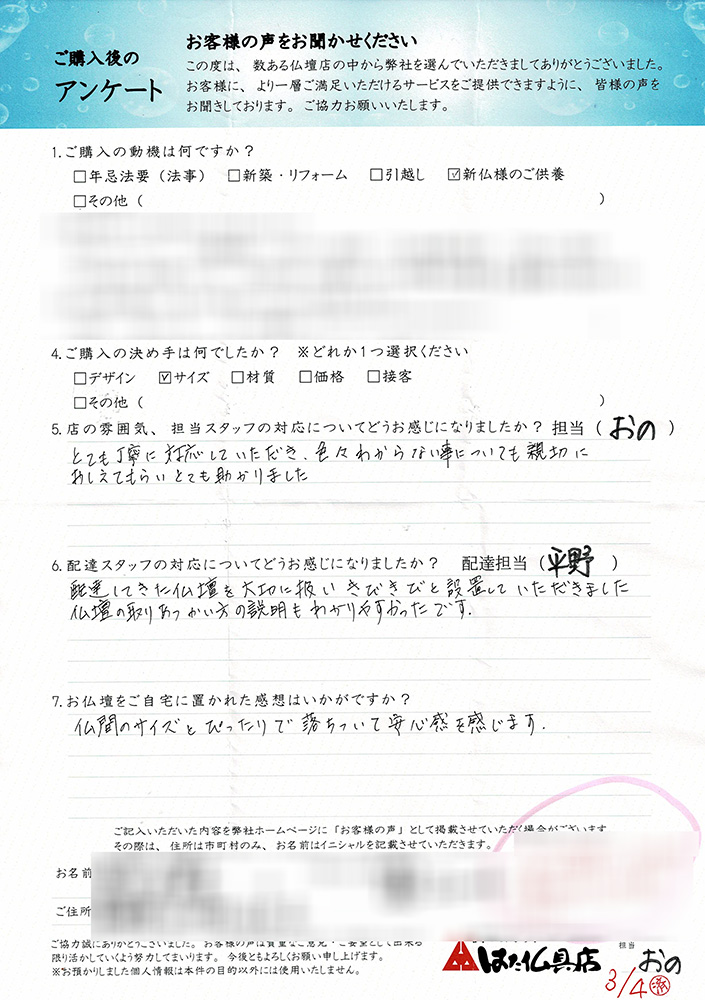 ご購入後の
アンケート
お客様の声をお聞かせください
この度は、数ある仏壇店の中から弊社を選んでいただきましてありがとうございました。
お客様に、より一層ご満足いただけるサービスをご提供できますように、皆様の声を
お聞きしております。ご協力お願いいたします。
1.ご購入の動機は何ですか？
□年忌法要（法事） □新築・リフォーム □引越し ☑新仏様のご供養
□その他（ ）
4.ご購入の決め手は何でしたか？ ※どれか1つ選択ください
□デザイン ☑サイズ □材質 □価格 □接客
□その他（ ）
5.店の雰囲気、担当スタッフの対応についてどうお感じになりましたか？ 担当（ おの ）
とても丁寧に対応していただき、色々わからない事についても親切に
おしえてもらいとても助かりました
6.配達スタッフの対応についてどうお感じになりましたか？ 配達担当（平野 ）
配達してきた仏壇を大切に扱いきびきびと設置していただきました
仏壇の取りあつかい方の説明もわかりやすかったです.
7.お仏壇をご自宅に置かれた感想はいかがですか？
仏間のサイズとぴったりで落ちついて安心感を感じます.
ご記入いただいた内容を弊社ホームページに「お客様の声」として掲載させていただく場合がございます
その際は、住所は市町村のみ、お名前はイニシャルを記載させていただきます。
お名前
ご住所
ご協力誠にありがとうございました。お客様の声は貴重なご意見・ご要望として出来る
限り活かしていくよう努力してまいります。今後ともよろしくお願い申し上げます。
※お預かりしました個人情報は本件の目的以外には使用いたしません。
はた仏具店
担当
おの
3/4 済